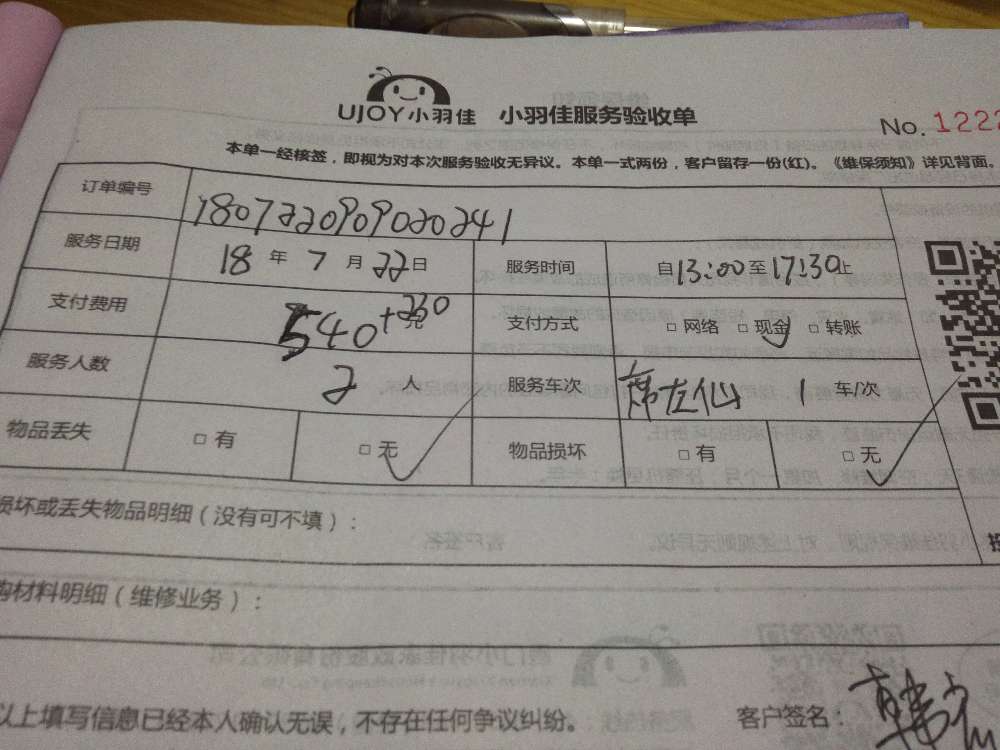 UJOY小羽佳 小羽佳服务验收单
No. 1222
本单一经核签，即视为对本次服务验收无异议。本单一式两份，客户留存一份(红)。《维保须知》详见背面。
订单编号 1807220909020241
服务日期 18 年 7 月 22 日 服务时间 自13:00至17:30止
支付费用 540+230元 支付方式 □ 网络 □ 现金 □ 转账
服务人数 2 人 服务车次 席左仙 1 车/次
物品丢失 □ 有 □ 无 物品损坏 □ 有 □ 无
损坏或丢失物品明细（没有可不填）：
购材料明细（维修业务）：
以上填写信息已经本人确认无误，不存在任何争议纠纷。 客户签名：